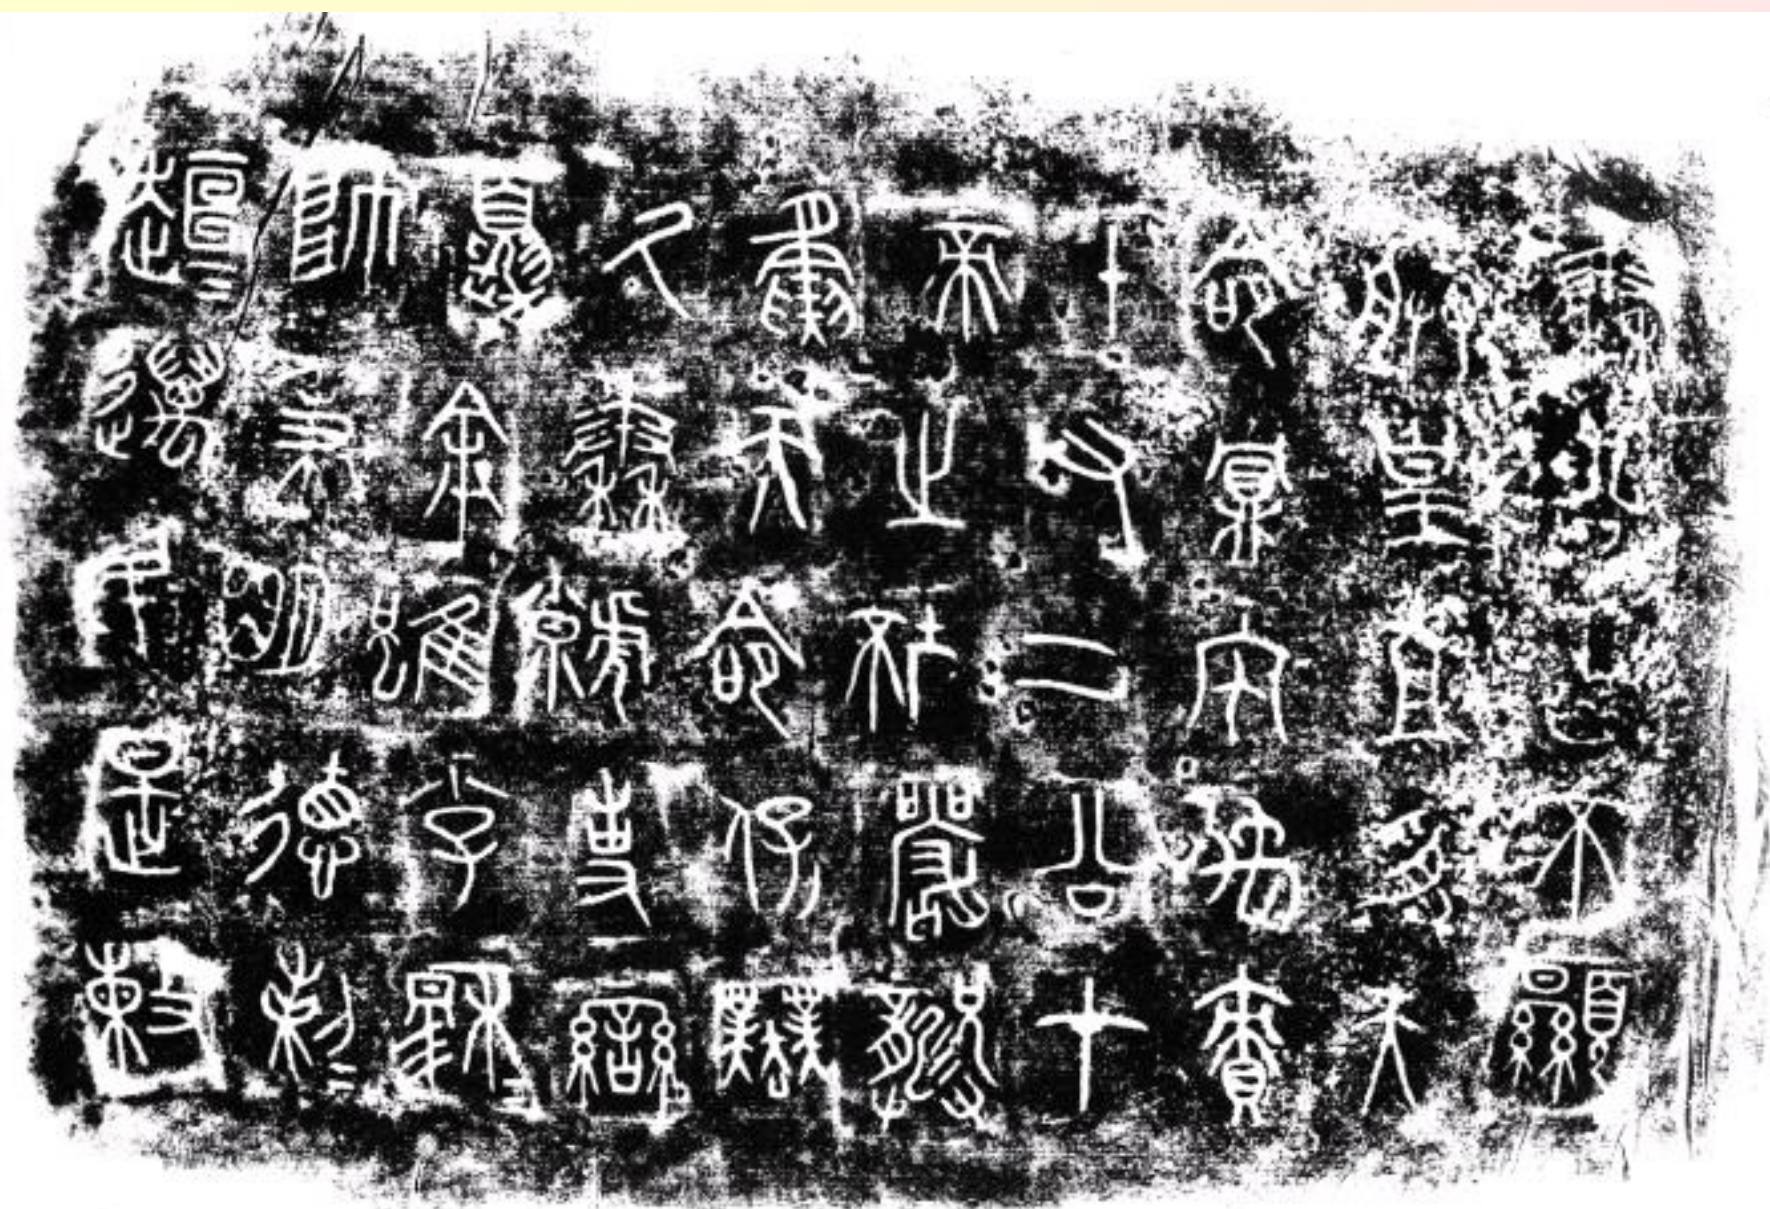 秦公曰不顯
朕皇且受天
命鼏宅禹責
十又二公才
帝之坏嚴龏
夤天命保業
氒秦虩事蠻
夏余雖小子穆＝
帥秉明德剌＝
趄＝邁民是敕